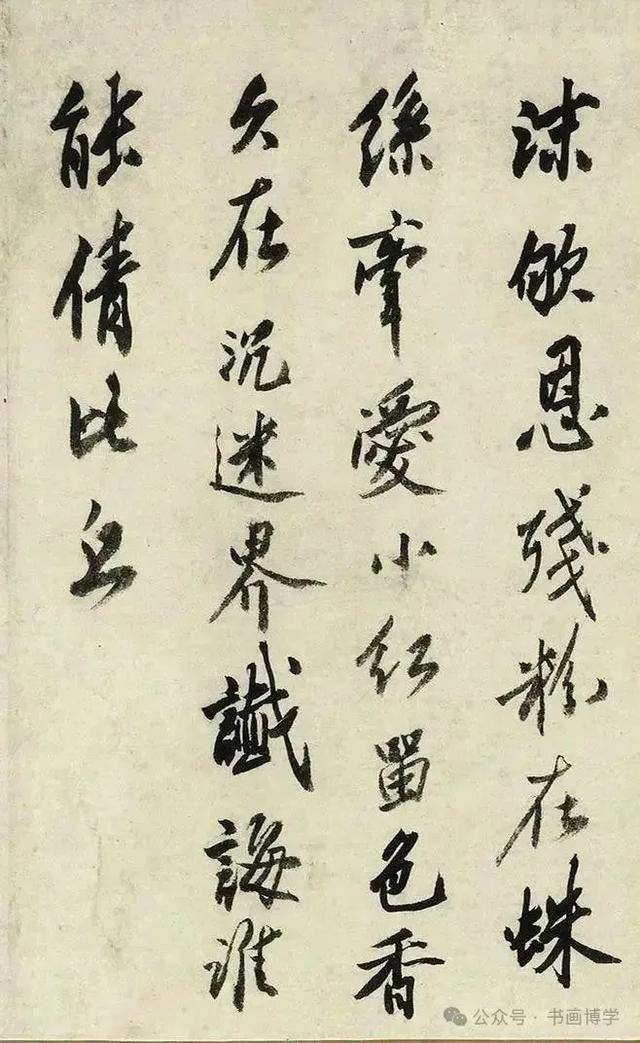 沫恩殘粉在蛛
絲牽愛小紅留色香
久在沉迷界懺誨誰
能倩比丘
公众号 · 书画博学